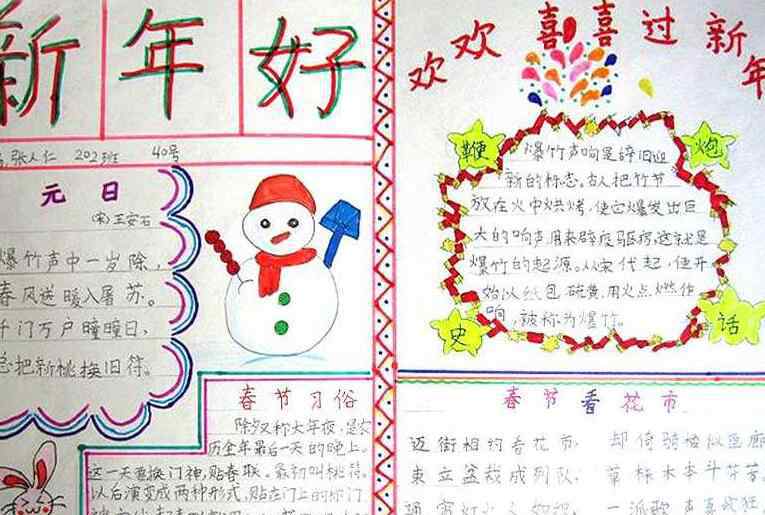 新年好
张人仁 202班 40号
元日
(宋)王安石
爆竹声中一岁除,
春风送暖入屠苏。
千门万户瞳瞳日,
总把新桃换旧符。
春节习俗
除夕又称大年夜,是农
历全年最后一天的晚上。
这一天要换门神,贴春联。最初叫桃符。
以后演变成两种形式,贴在门上的称门
欢欢喜喜过新年
鞭炮史话
爆竹声响是辞旧迎
新的标志。古人把竹节
放在火中烘烤,使它爆发出巨
大的响声用来辟疫驱邪,这就是
爆竹的起源。从宋代起,便开
始以纸包硫黄,用火点燃作
响,被称为爆竹。
春节看花市
迈街相约看花市,
却倚骑楼似画廊
束立盆栽成列队,
草标木本斗芬芳
一派歌声喜欲狂